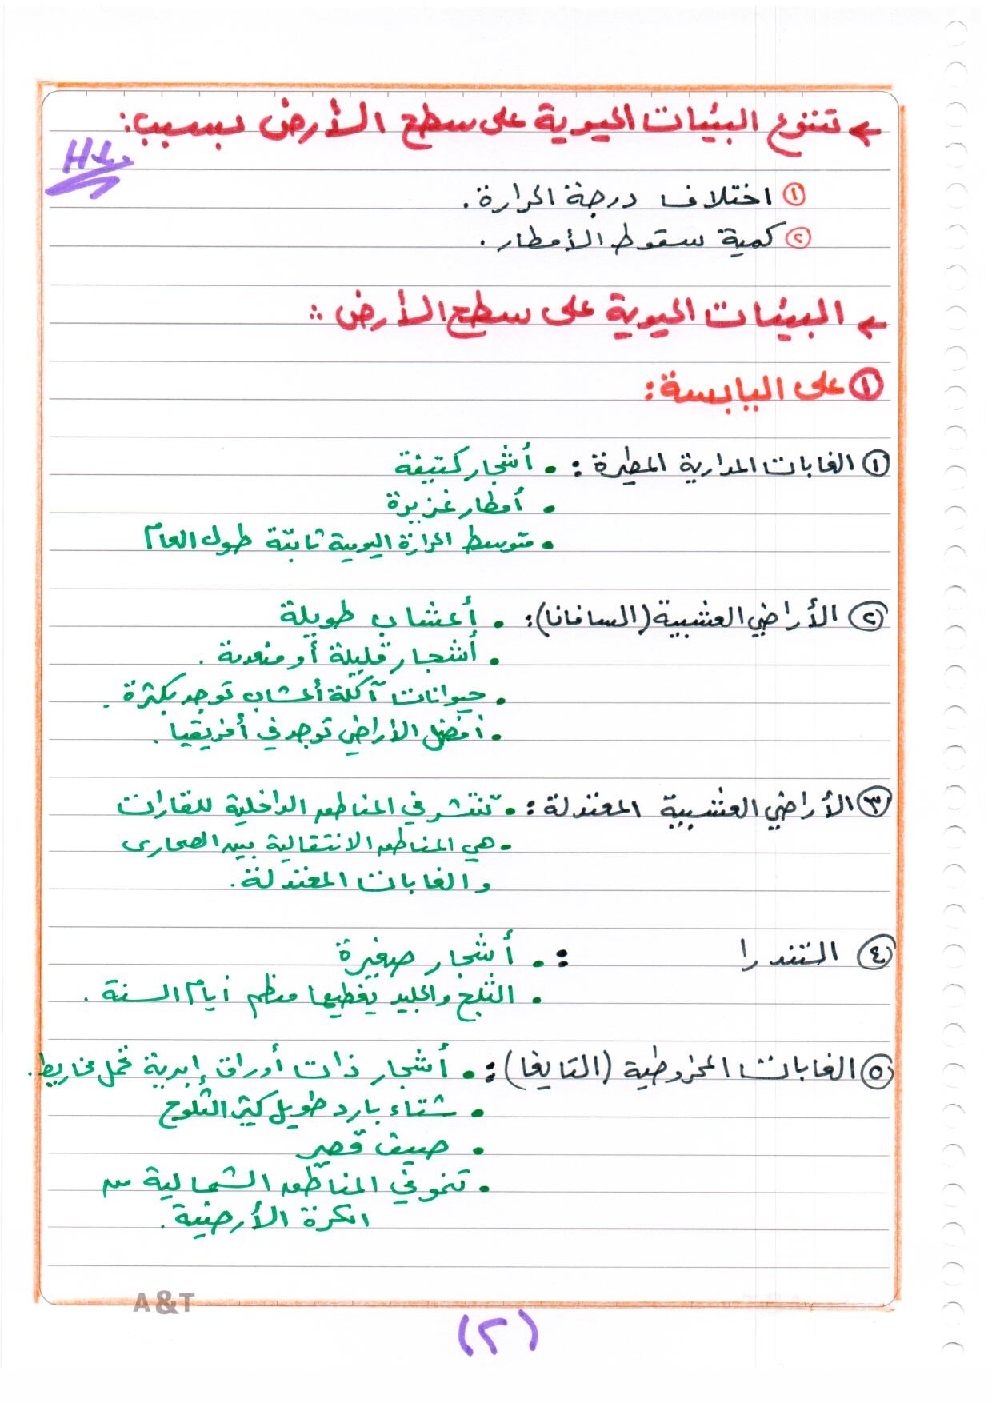 ← تتنوع البيئات الحيوية على سطح الأرض بسبب:
① اختلاف درجة الحرارة.
② كمية سقوط الأمطار.
← البيئات الحيوية على سطح الأرض:
① على اليابسة:
① الغابات المدارية المطيرة: • أشجار كثيفة
• أمطار غزيرة
• متوسط الحرارة اليومية ثابتة طول العام
② الأراضي العشبية (السافانا): • أعشاب طويلة
• أشجار قليلة أو منعدمة.
• حيوانات آكلة أعشاب توجد بكثرة.
• أفضل الأراضي توجد في أفريقيا.
③ الأراضي العشبية المعتدلة: • تنتشر في المناطق الداخلية للقارات
• هي المناطق الانتقالية بين الصحارى
والغابات المعتدلة.
④ التندرا : • أشجار صغيرة
• الثلج والجليد يغطيها معظم أيام السنة.
⑤ الغابات المخروطية (التايغا): • أشجار ذات أوراق إبرية تحمل مخاريط.
• شتاء بارد طويل كثير الثلوج
• صيف قصير
• تنمو في المناطق الشمالية من
الكرة الأرضية.
A&T
(٢)